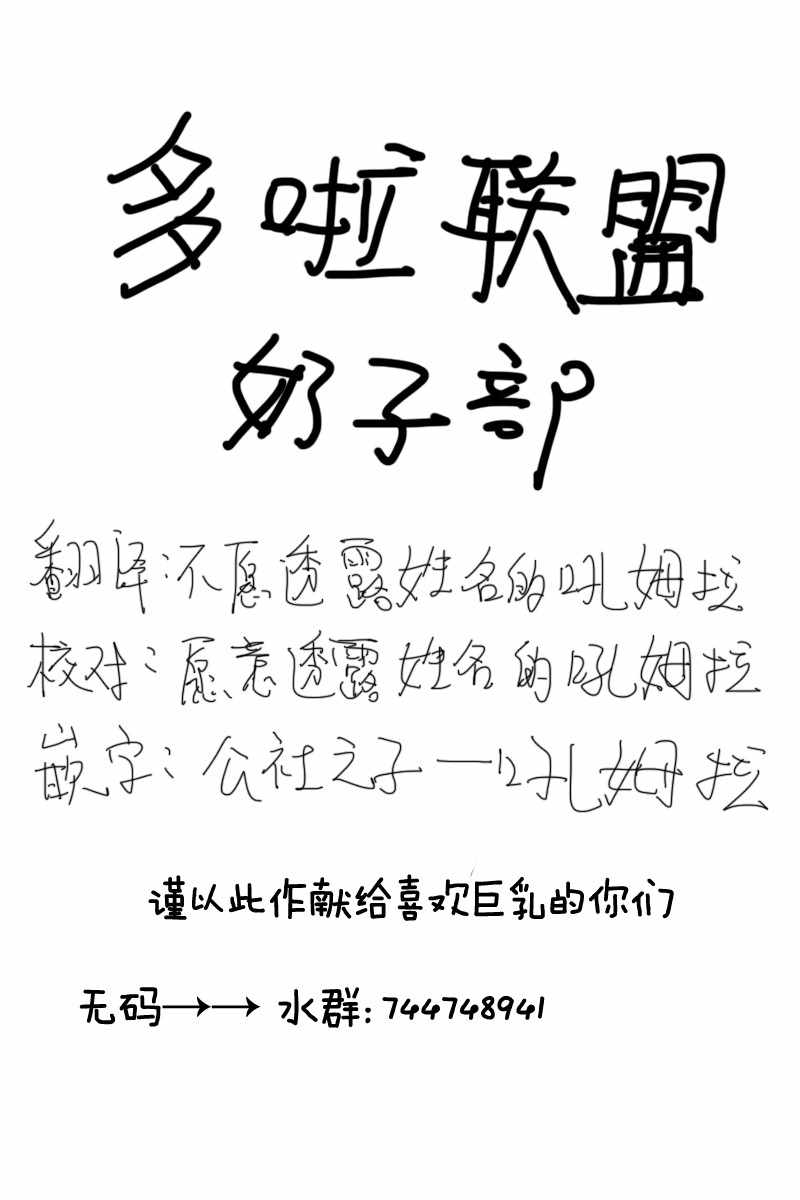 多啦联盟
奶子部
翻译:不愿透露姓名的吼姆拉
校对:愿意透露姓名的吼姆拉
嵌字:公社之子一吼姆拉
谨以此作献给喜欢巨乳的你们
无码→→ 水群:744748941